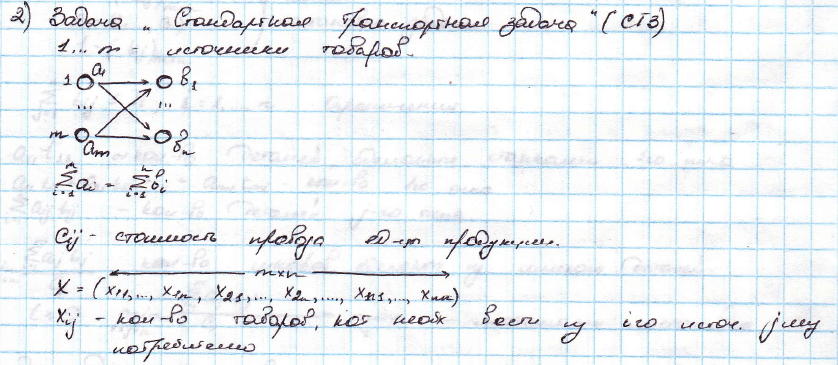 2) Задача „Стандартная транспортная задача“ (СТЗ)
1... m - источники товаров.
1 a₁ b₁
... ...
m aₘ bₙ
∑ᵢ₌₁ⁿ aᵢ = ∑ᵢ₌₁ⁿ bᵢ
Cij - стоимость провоза ед-цы продукции.
m×n
X = (x₁₁,..., x₁ₙ, x₂₁,..., x₂ₙ,...., xₙ₁,..., xₙₙ)
Xij - кол-во товаров, кот необх везти из i го источ. j му
потребителю